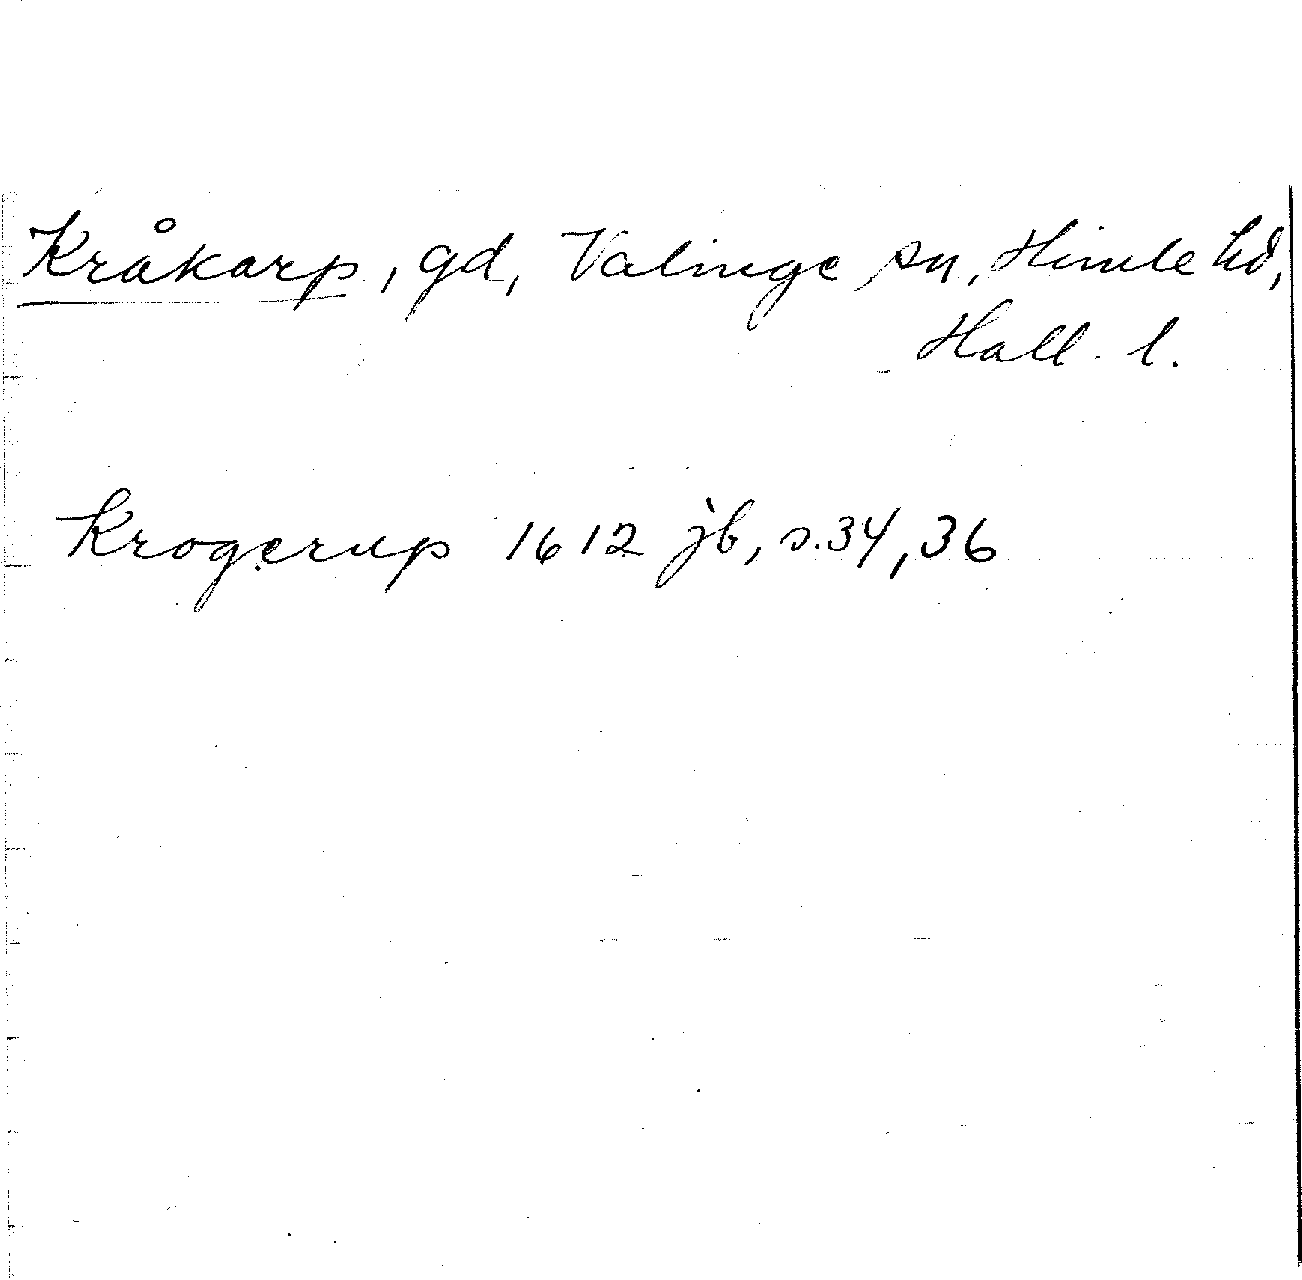 Kråkarp, gd, Valinge sn, Himle hd,
Hall. l.
Krogerup 1612 jb, s. 34, 36